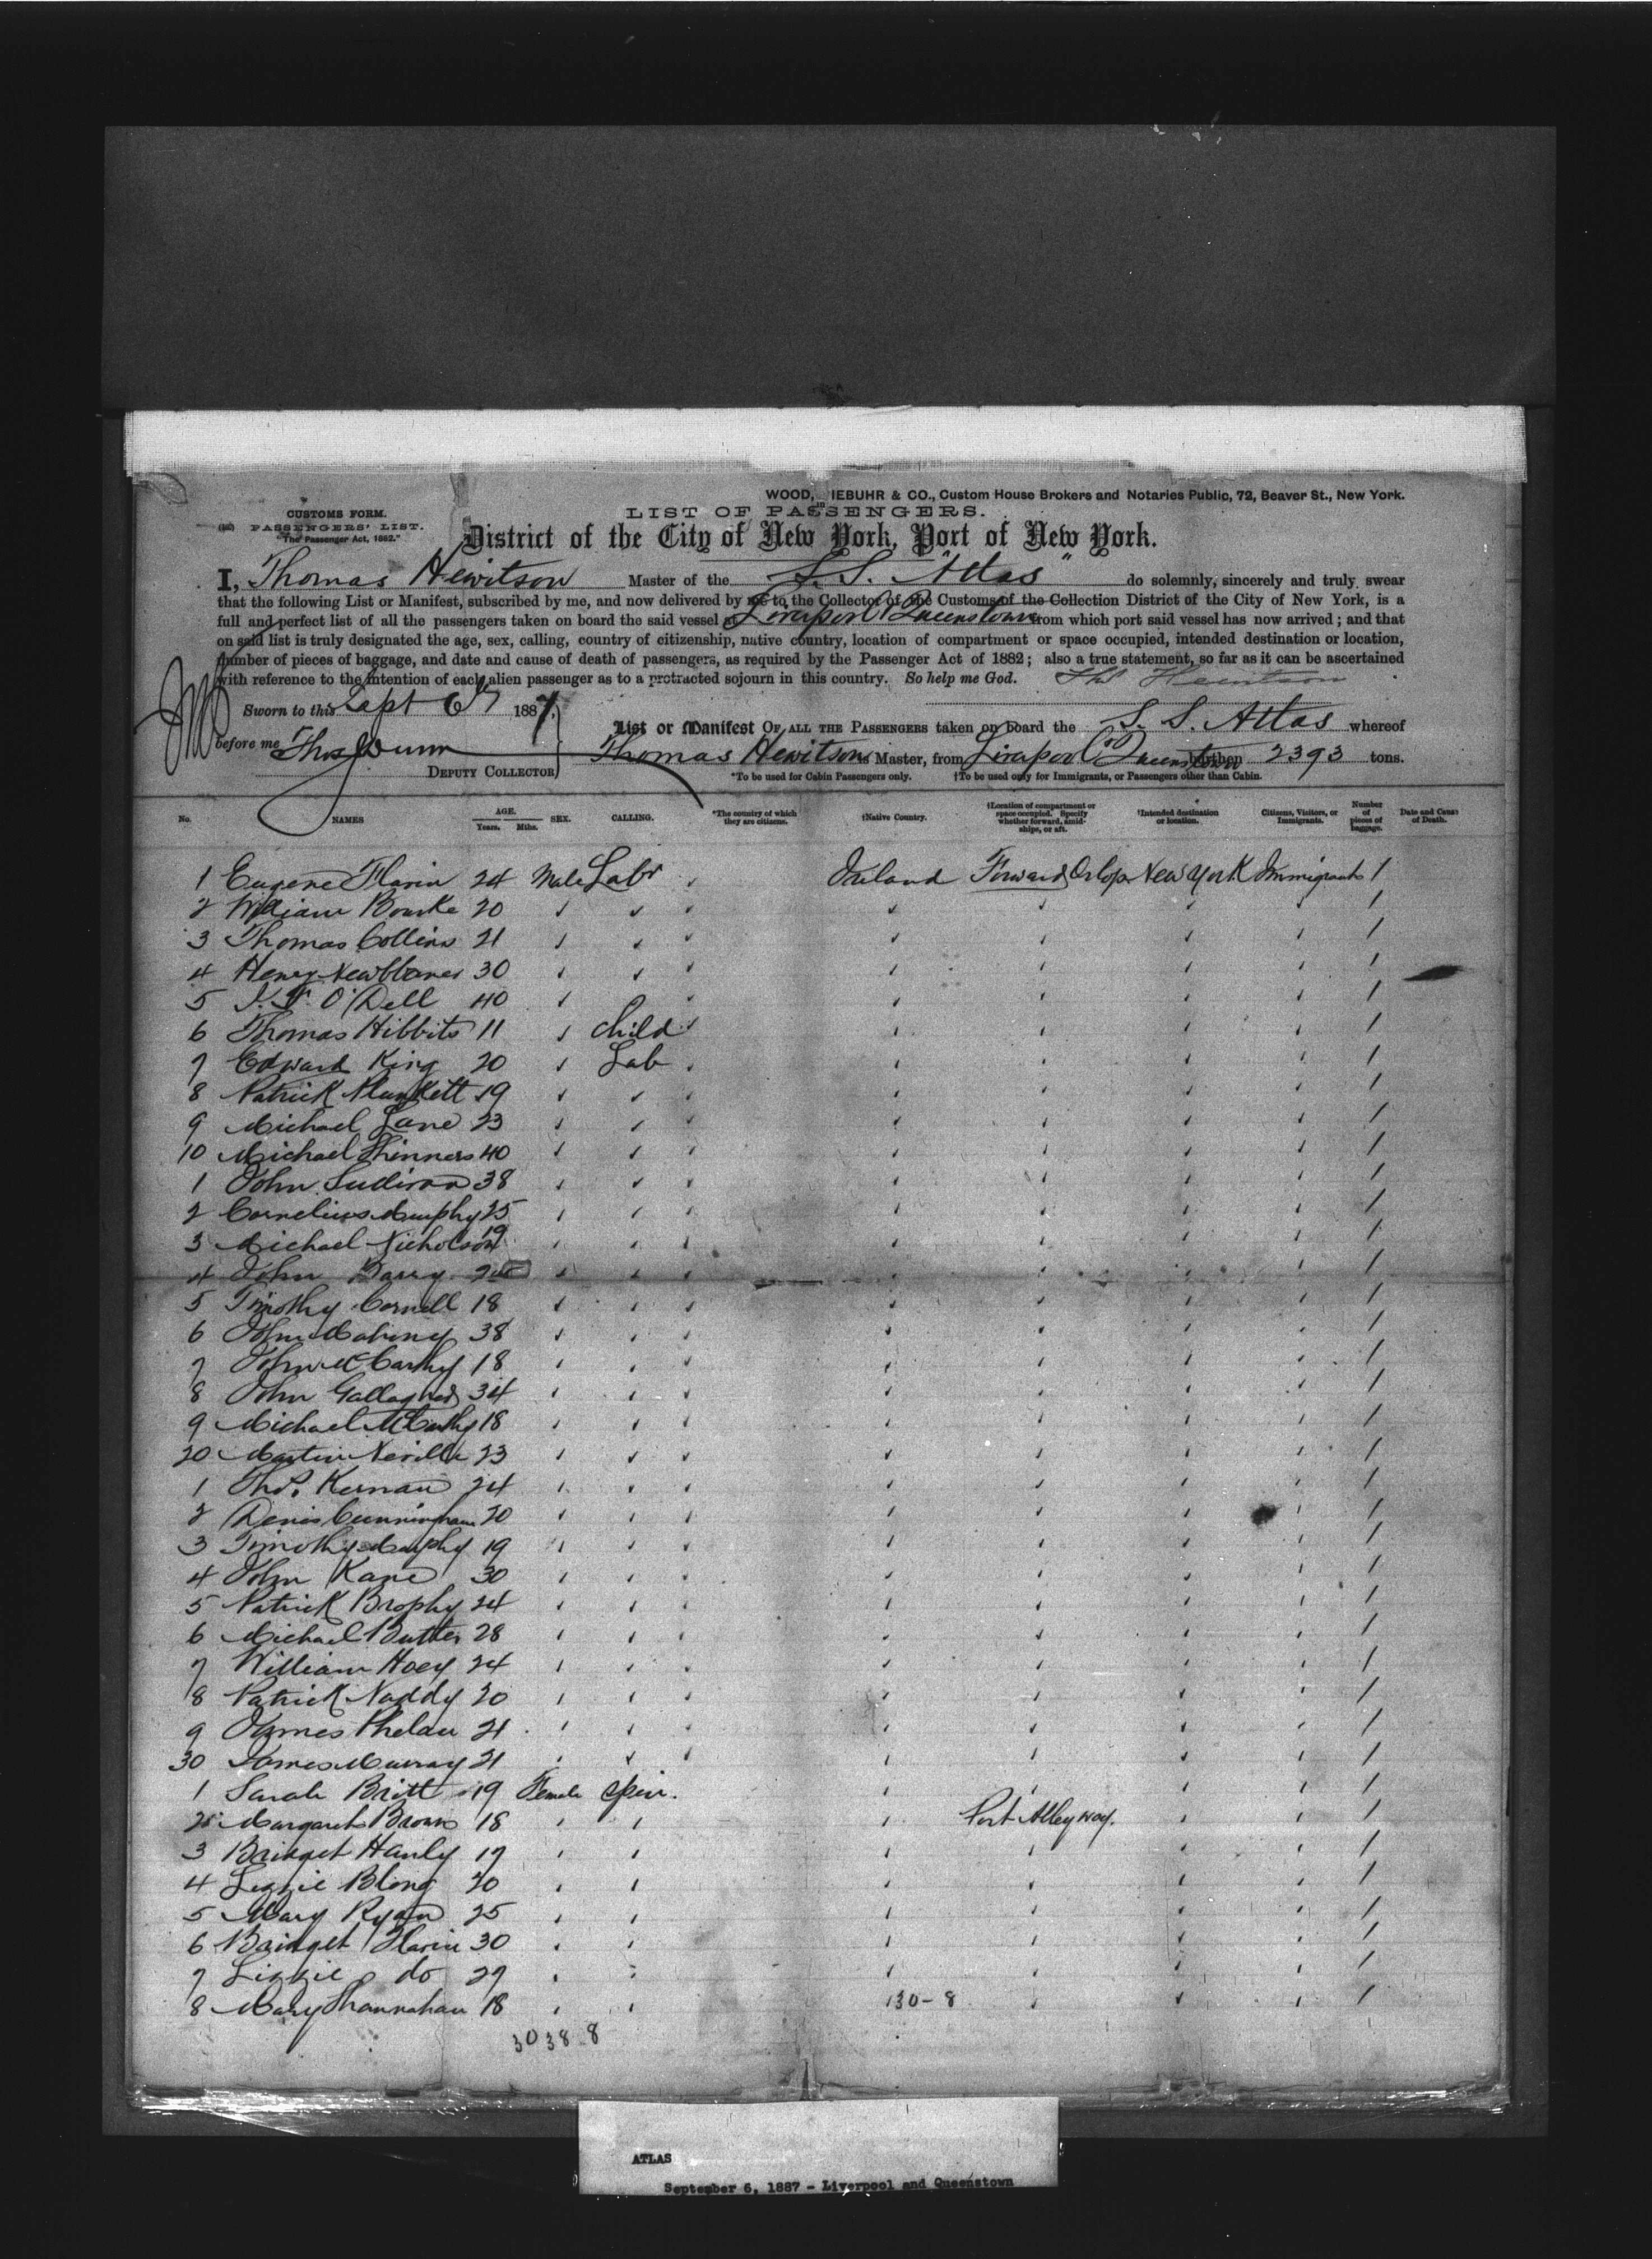 WOOD, IEBUHR & CO., Custom House Brokers and Notaries Public, 72, Beaver St., New York.
CUSTOMS FORM.
PASSENGERS' LIST.
"The Passenger Act, 1882."
LIST OF PASSENGERS.
District of the City of New York, Port of New York.
I, Thomas Hewitson Master of the S.S. "Atlas" do solemnly, sincerely and truly swear
that the following List or Manifest, subscribed by me, and now delivered by me to the Collector of the Customs of the Collection District of the City of New York, is a
full and perfect list of all the passengers taken on board the said vessel at Liverpool & Queenstown from which port said vessel has now arrived; and that
on said list is truly designated the age, sex, calling, country of citizenship, native country, location of compartment or space occupied, intended destination or location,
number of pieces of baggage, and date and cause of death of passengers, as required by the Passenger Act of 1882; also a true statement, so far as it can be ascertained
with reference to the intention of each alien passenger as to a protracted sojourn in this country. So help me God. Thos Hewitson
Sworn to this Sept 6th 1887.
before me Thos Dunn
DEPUTY COLLECTOR
List or Manifest OF ALL THE PASSENGERS taken on board the S. S. Atlas whereof
Thomas Hewitson is Master, from Liverpool & Queenstown burthen 2393 tons.
*To be used for Cabin Passengers only. †To be used only for Immigrants, or Passengers other than Cabin.
No. NAMES AGE. Years. Mths. SEX. CALLING. *The country of which they are citizens. †Native Country. †Location of compartment or space occupied. Specify whether forward, amidships, or aft. †Intended destination or location. Citizens, Visitors, or Immigrants. Number of pieces of baggage. Date and Cause of Death.
1 Eugene Flavin 24 Male Labr Ireland Forward Orlop New York Immigrants 1
2 William Bourke 20 1
3 Thomas Collins 21 1
4 Henry 30 1
5 O'Dell 40 1
6 Thomas Hibbits 11 Child 1
7 Edward King 20 Lab 1
8 Patrick Plunkett 19 1
9 Michael Lane 23 1
10 Michael Shinners 40 1
1 John Sullivan 38 1
2 Cornelius Murphy 25 1
3 Michael Nicholson 19 1
4 John Barry 1
5 Timothy Cornell 18 1
6 John Mahiney 38 1
7 John McCarthy 18 1
8 John Gallagher 34 1
9 Michael McCarthy 18 1
20 Martin Neville 23 1
1 Thos. Kernan 24 1
2 Denis Cunningham 20 1
3 Timothy Murphy 19 1
4 John Kane 30 1
5 Patrick Brophy 24 1
6 Michael Butler 28 1
7 William Hoey 24 1
8 Patrick Naddy 20 1
9 James Phelan 21 1
30 James Murray 21 1
1 Sarah Britt 19 Female Spin. 1
2 Margaret Brown 18 Port Alleyway. 1
3 Bridget Hanly 19 1
4 Lizzie Blong 20 1
5 Mary Ryan 25 1
6 Bridget Flavin 30 1
7 Lizzie do 1
8 Mary Shannahan 18 130-8 1
30 38 8
ATLAS
September 6, 1887 - Liverpool and Queenstown